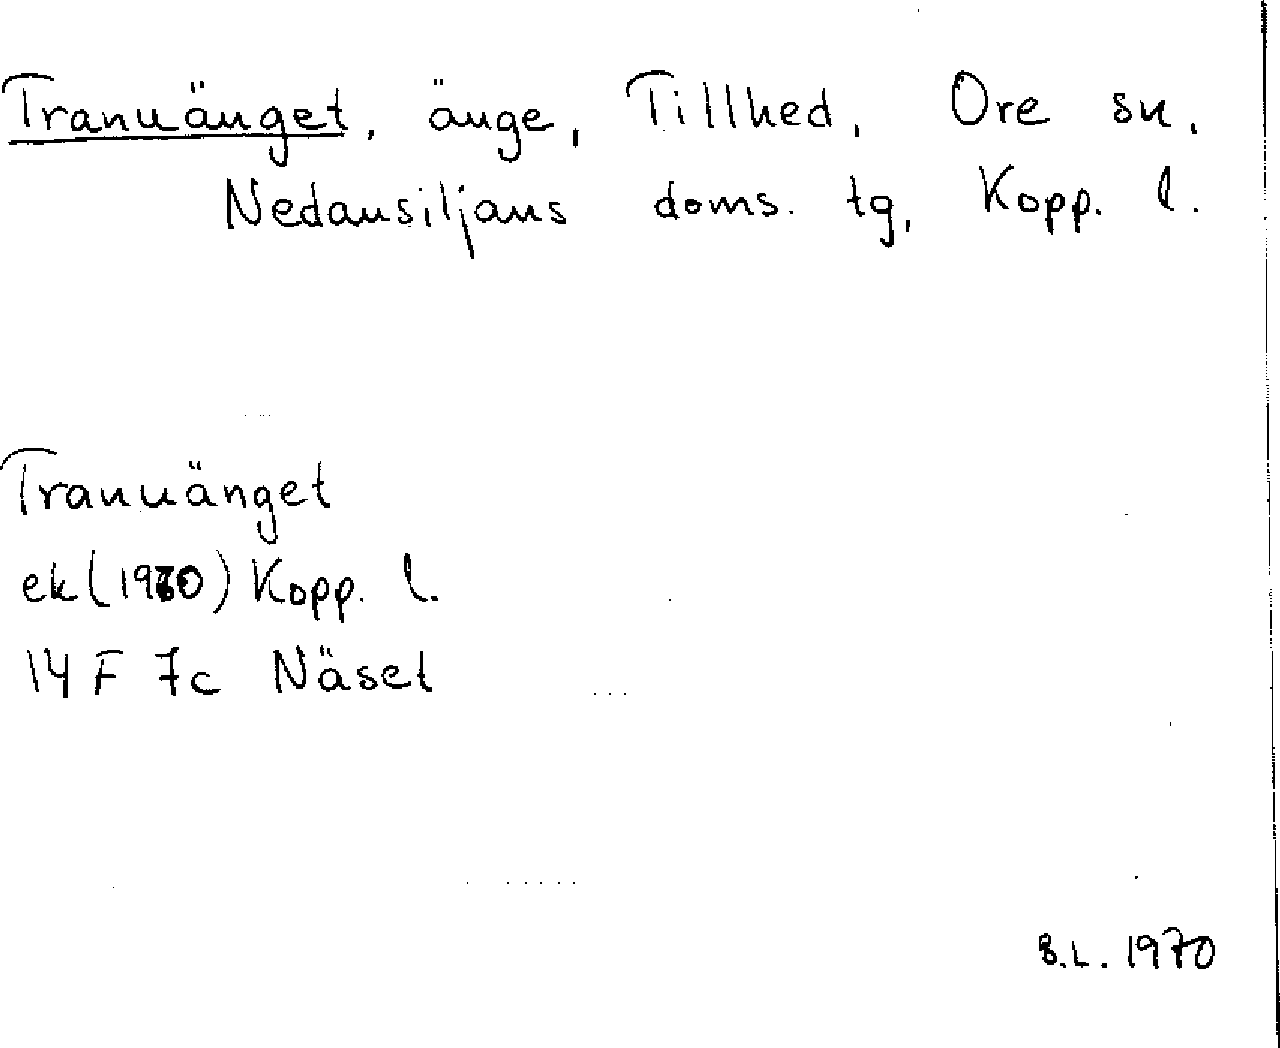 Trannänget, änge, Tillhed, Ore sn,
Nedansiljans doms. tg, Kopp. l.
Trannänget
ek (1970) Kopp. l.
14 F 7c Näset
B.L. 1970